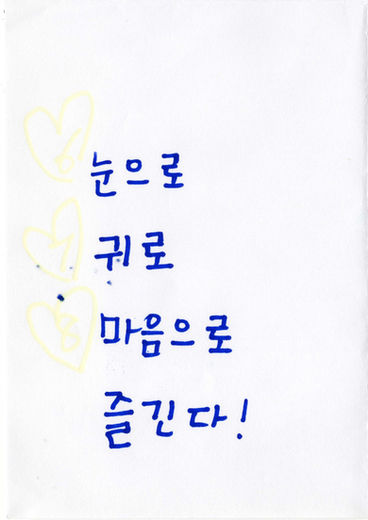 눈으로
귀로
마음으로
즐긴다!